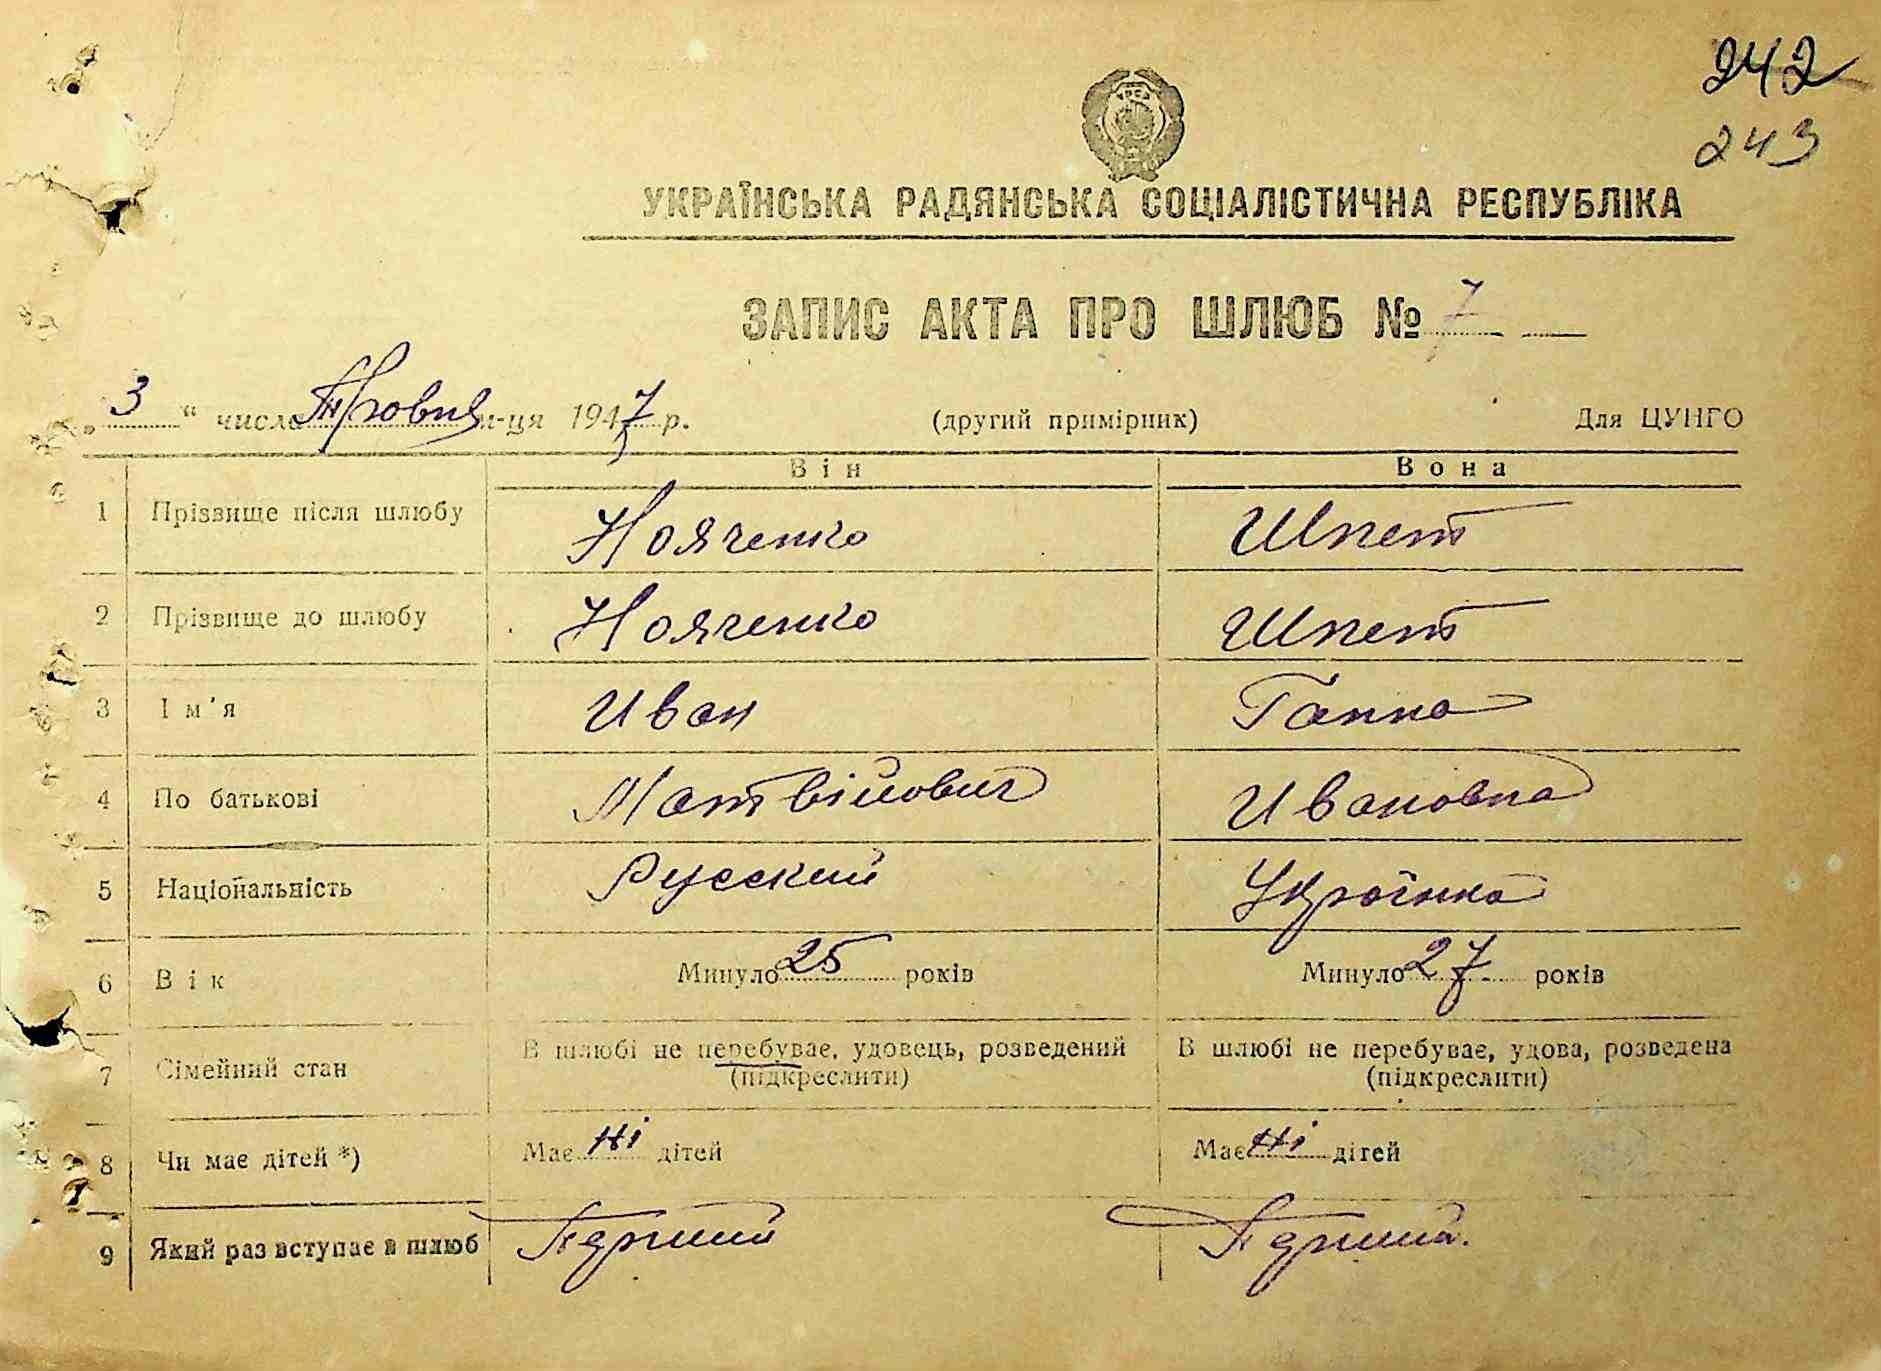 242
243
УРСР
УКРАЇНСЬКА РАДЯНСЬКА СОЦІАЛІСТИЧНА РЕСПУБЛІКА
ЗАПИС АКТА ПРО ШЛЮБ № 7
„3“ числа м-ця 1947 р. (другий примірник) Для ЦУНГО
Він Вона
1 Прізвище після шлюбу Нояченко Шпет
2 Прізвище до шлюбу Нояченко Шпет
3 Ім'я Иван Ганна
4 По батькові Матвійович Ивановна
5 Національність Русский Українка
6 Вік Минуло 25 років Минуло 27 років
7 Сімейний стан В шлюбі не перебуває, удовець, розведений (підкреслити) В шлюбі не перебуває, удова, розведена (підкреслити)
8 Чи має дітей *) Має ні дітей Має ні дітей
9 Який раз вступає в шлюб